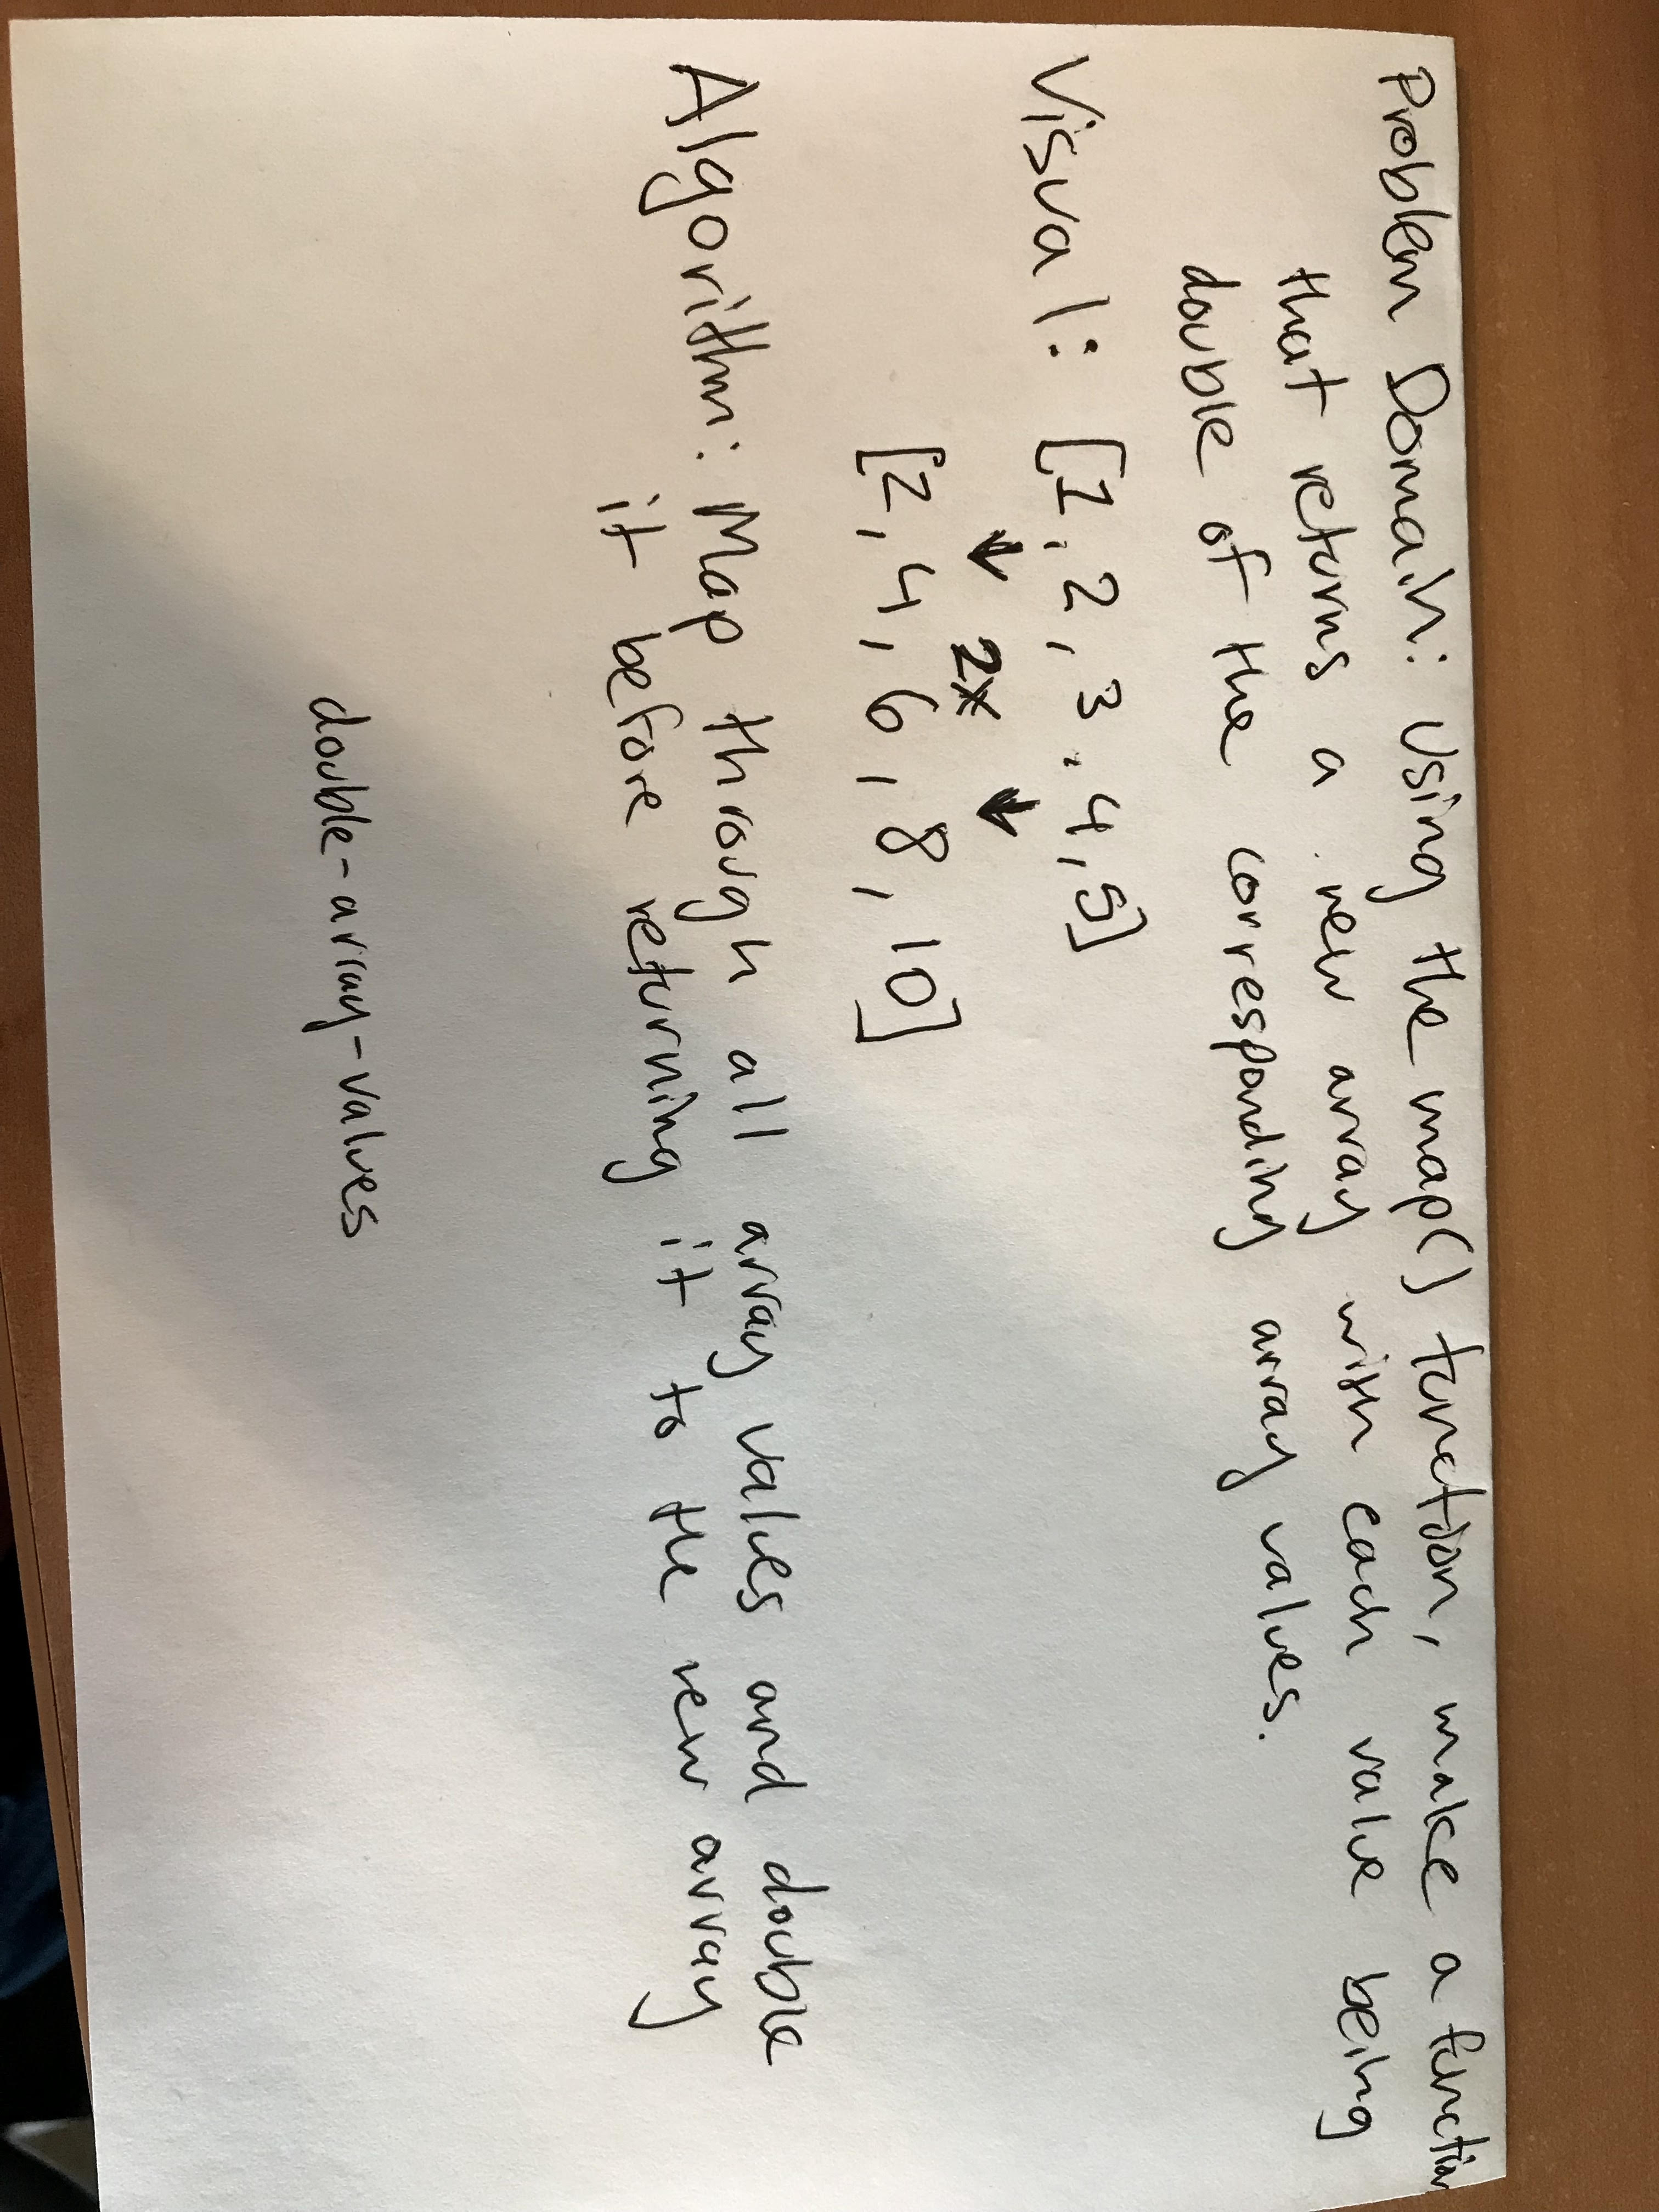 Problem Domain: Using the map() function, make a function
that returns a new array with each value being
double of the corresponding array values.
Visual: [1, 2, 3, 4, 5]
↓ 2x ↓
[2, 4, 6, 8, 10]
Algorithm: Map through all array values and double
it before returning it to the new array
double-array-values